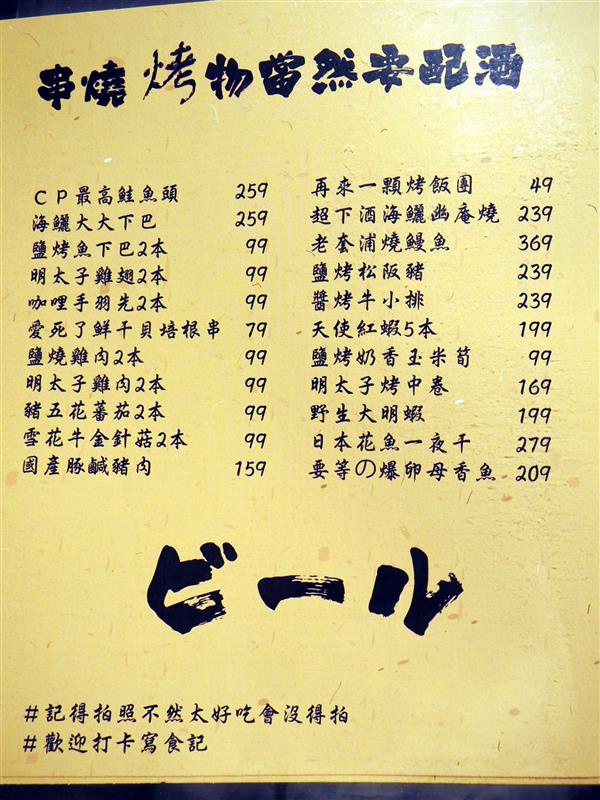 串燒烤物當然要配酒
CP最高鮭魚頭 259
海鱺大大下巴 259
鹽烤魚下巴2本 99
明太子雞翅2本 99
咖哩手羽先2本 99
愛死了鮮干貝培根串 79
鹽燒雞肉2本 99
明太子雞肉2本 99
豬五花蕃茄2本 99
雪花牛金針菇2本 99
國產豚鹹豬肉 159
再來一顆烤飯團 49
超下酒海鱺幽庵燒 239
老套浦燒鰻魚 369
鹽烤松阪豬 239
醬烤牛小排 239
天使紅蝦5本 199
鹽烤奶香玉米筍 99
明太子烤中卷 169
野生大明蝦 199
日本花魚一夜干 279
要等の爆卵母香魚 209
ビール
#記得拍照不然太好吃會沒得拍
#歡迎打卡寫食記